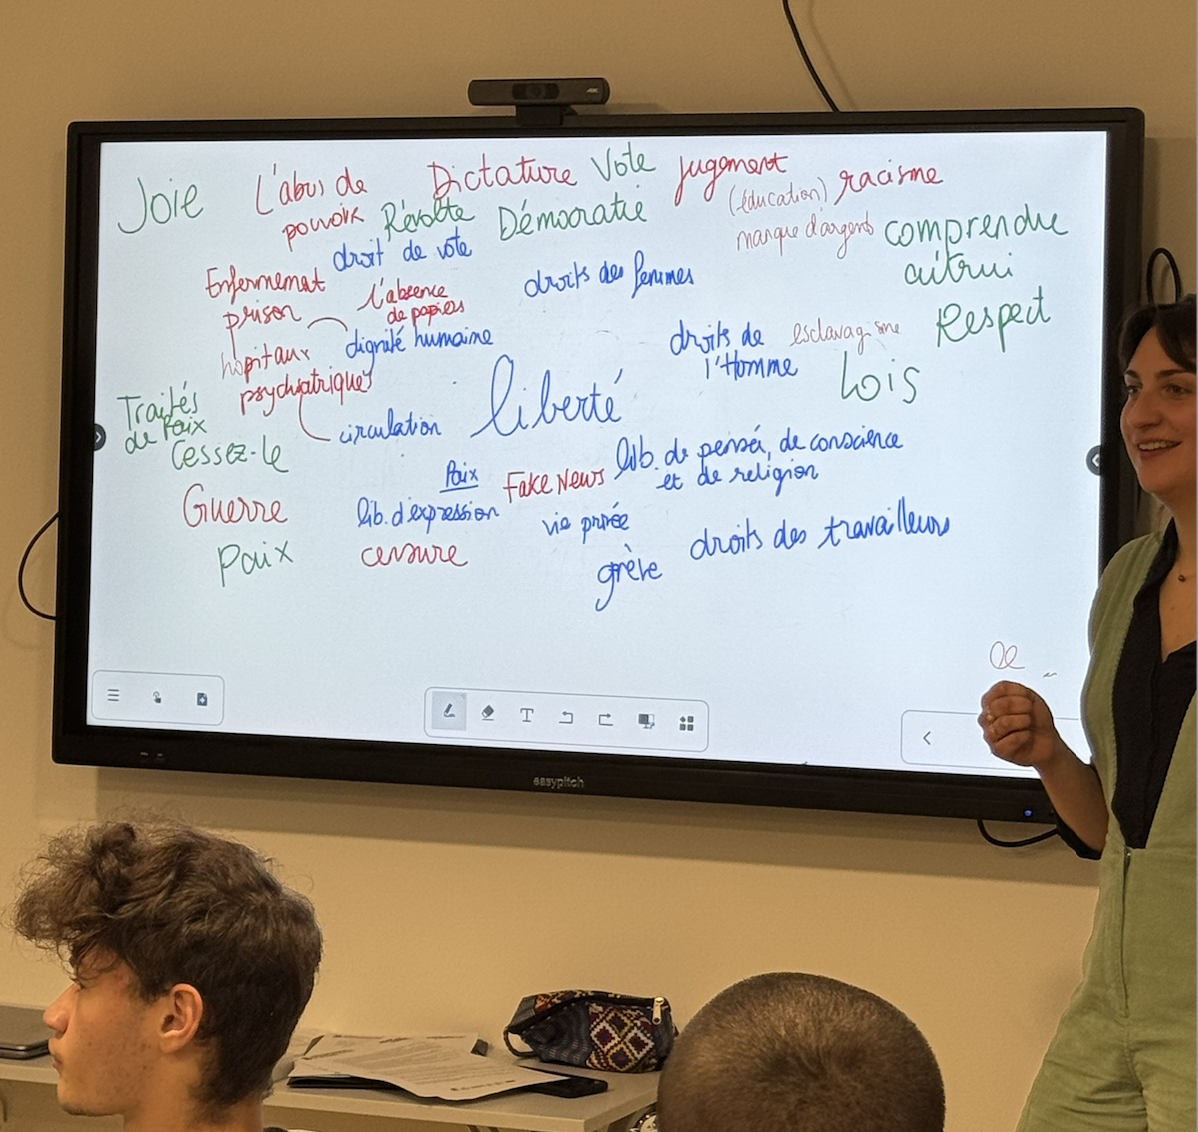 Joie
L'abus de
pouvoir
Dictature
Vote
jugement
(éducation)
racisme
Révolte
Démocratie
manque d'argents
comprendre
autrui
droit de vote
Enfermemat
prison
l'absence
de papiers
droits des femmes
Respect
dignité humaine
hôpitaux
psychiatriques
droits de
l'Homme
esclavagisme
Lois
Traités
de Paix
Cessez-le
circulation
liberté
Paix
Fake News
lib. de pensée, de conscience
et de religion
Guerre
lib. d'expression
vie privée
Paix
censure
grève
droits des travailleurs
T
easypitch